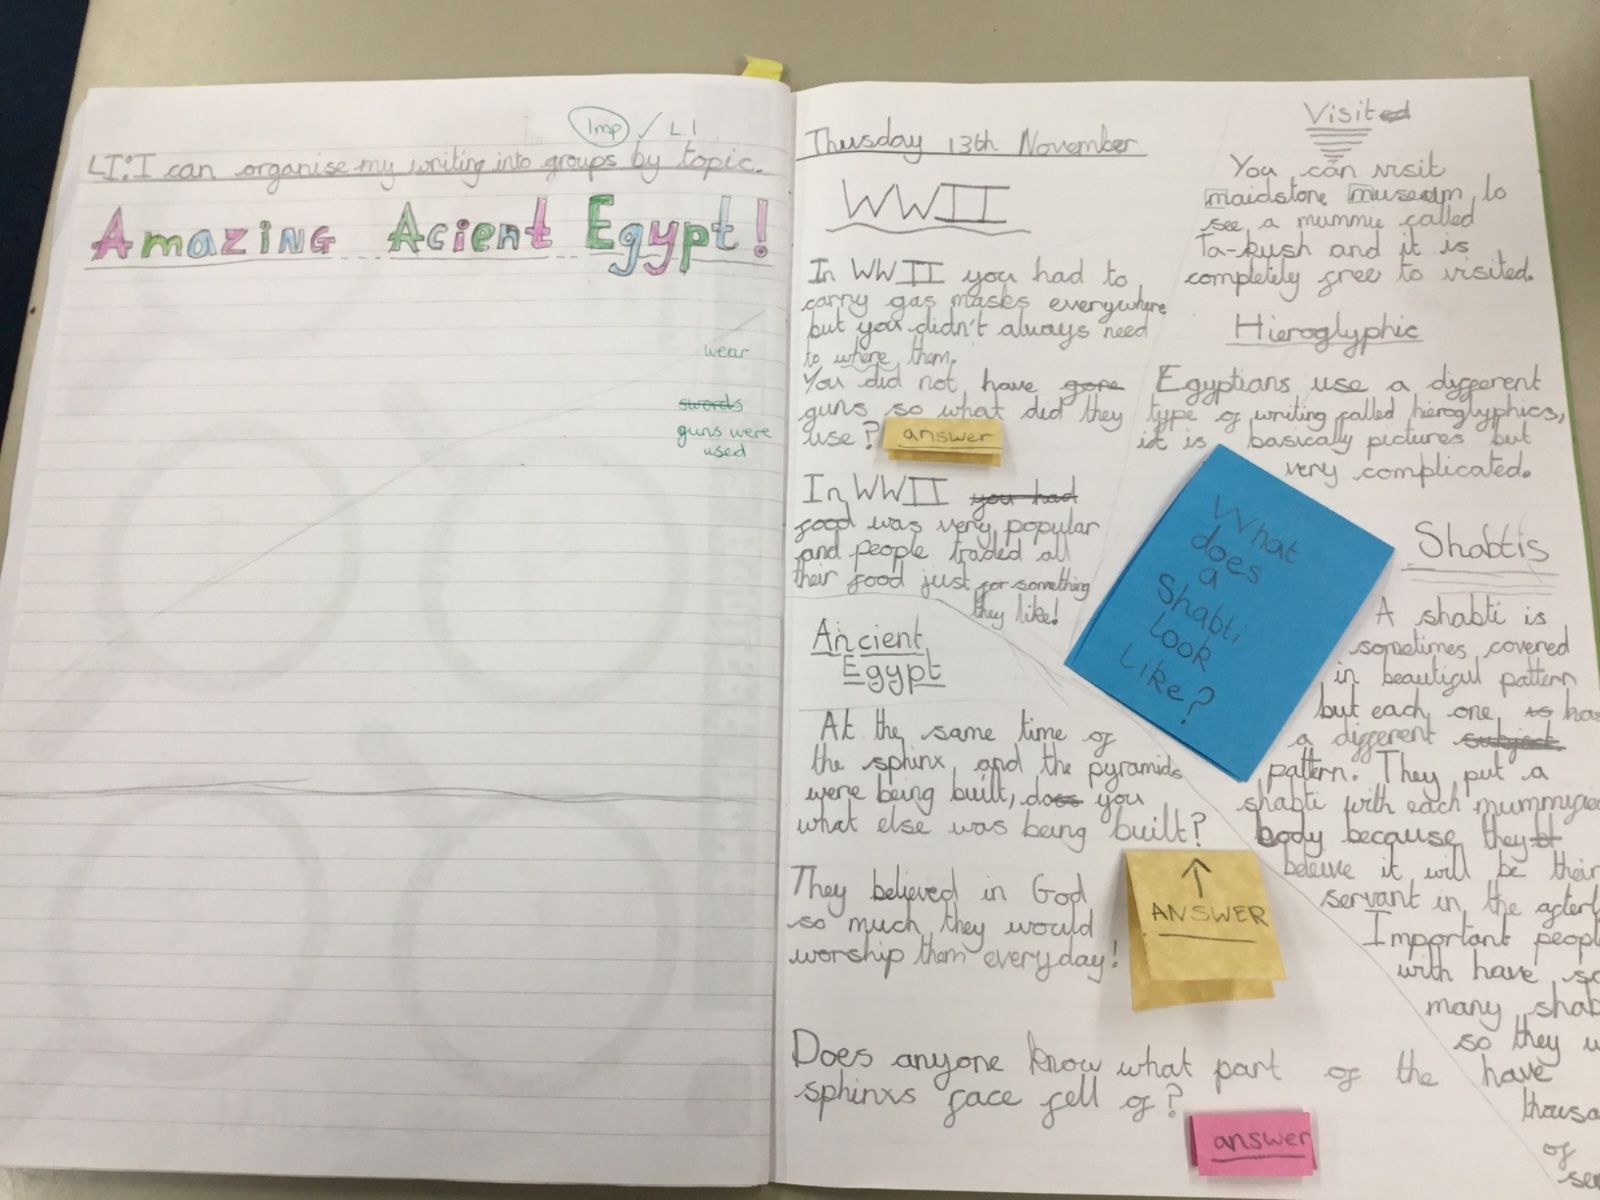 Imp ✓ LI
LI: I can organise my writing into groups by topic.
Amazing Acient Egypt!
wear
swords
guns were
used
Thusday 13th November
WWII
In WWII you had to
carry gas masks everywhere
but you didn't always need
to where them.
You did not have gone
guns so what did they
use? answer
In WWII you had
food was very popular
and people traded all
their food just for something
they like!
Ancient
Egypt
At the same time of
the sphinx and the pyramids
were being built, does you
what else was being built?
ANSWER
They believed in God
so much they would
worship them everyday!
Does anyone know what part of the
sphinxs face fell of?
answer
Visited
You can visit
maidstone museum to
see a mummy called
Ta-kush and it is
completely free to visited.
Hieroglyphic
Egyptians use a different
type of writing called hieroglyphics,
it is basically pictures but
very complicated.
What
does
a
Shabti
look
like?
Shabtis
A shabti is
sometimes covered
in beautiful pattern
but each one is has
a different subject
pattern. They put a
shabti with each mummified
body because they
beleive it will be their
servant in the afterl
Important peopl
with have so
many shab
so they w
have
thousa
of
ser